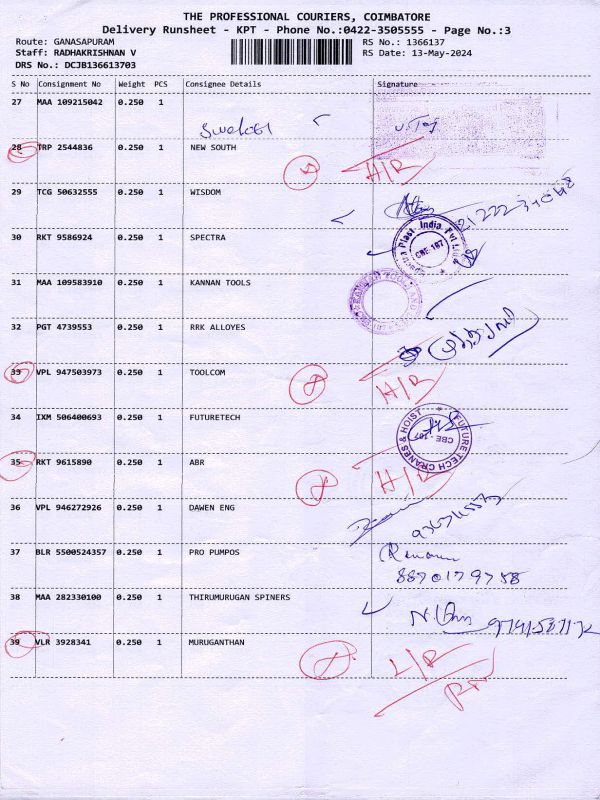 THE PROFESSIONAL COURIERS, COIMBATORE
Delivery Runsheet - KPT - Phone No.:0422-3505555 - Page No.:3
Route: GANASAPURAM RS No.: 1366137
Staff: RADHAKRISHNAN V RS Date: 13-May-2024
DRS No.: DCJB136613703
S No Consignment No Weight PCS Consignee Details Signature
27 MAA 109215042 0.250 1
28 TRP 2544836 0.250 1 NEW SOUTH H/R
29 TCG 50632555 0.250 1 WISDOM
30 RKT 9586924 0.250 1 SPECTRA
Plast India Pvt Ltd
CBE-107
31 MAA 109583910 0.250 1 KANNAN TOOLS
32 PGT 4739553 0.250 1 RRK ALLOYES
33 VPL 947503973 0.250 1 TOOLCOM H/R
34 IXM 506400693 0.250 1 FUTURETECH
FUTURE TECH CRANES & HOIST
CBE-107
35 RKT 9615890 0.250 1 ABR H/R
36 VPL 946272926 0.250 1 DAWEN ENG
37 BLR 5500524357 0.250 1 PRO PUMPOS
8870179758
38 MAA 282330100 0.250 1 THIRUMURUGAN SPINERS
39 VLR 3928341 0.250 1 MURUGANTHAN L/R